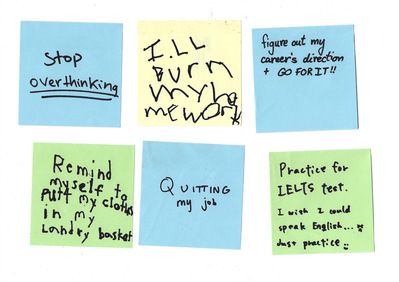 Stop
overthinking
I.LL
BURN
MY HO
MEWORK
figure out my
career's direction
+ GO FOR IT!!
Remind
myself to
putt my clothes
in my
landry basket
QUITTING
my job
Practice for
IELTS test.
I wish I could
speak English...
Just practice